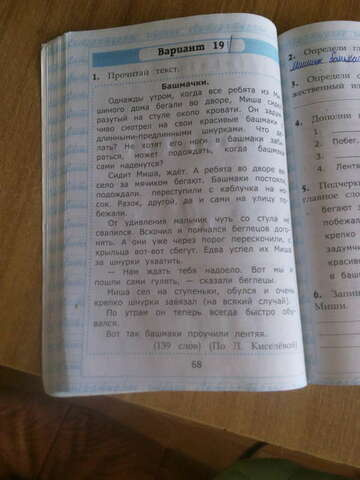 Вариант 19
1. Прочитай текст.
Башмачки.
Однажды утром, когда все ребята из Ми-
шиного дома бегали во дворе, Миша сидел
разутый на стуле около кровати. Он задум-
чиво смотрел на свои красивые башмаки с
длинными-предлинными шнурками. Что де-
лать? Не хотят его ноги в башмаки заби-
раться, может, подождать, когда башмаки
сами наденутся?
Сидит Миша, ждёт. А ребята во дворе ве-
село за мячиком бегают. Башмаки постояли,
подождали, переступили с каблучка на но-
сок. Разок, другой, да и сами на улицу по-
бежали.
От удивления мальчик чуть со стула не
свалился. Вскочил и помчался беглецов дого-
нять. А они уже через порог перескочили, с
крыльца вот-вот сбегут. Едва успел их Миша
за шнурки ухватить.
— Нам ждать тебя надоело. Вот мы и
пошли сами гулять, — сказали беглецы.
Миша сел на ступеньки, обулся и очень
крепко шнурки завязал (на всякий случай).
По утрам он теперь всегда быстро обу-
вался.
Вот так башмаки проучили лентяя.
(139 слов) (По Л. Киселёвой)
68
2. Определи
3. Определи
жественный
4. Дополни
1.
2. Побег.
3.
4. Лентя
5. Подчерк
главное сло
бегают
побежа
крепко
задум
красив
в баш
6. Запи
Миши.